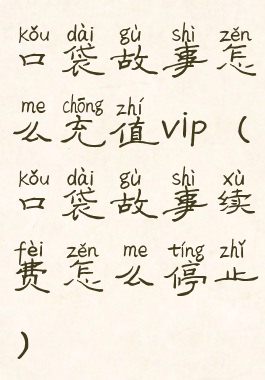 kǒu dài gù shì zěn
口袋故事怎
me chōng zhí
么充值vip（
kǒu dài gù shì xù
口袋故事续
fèi zěn me tíng zhǐ
费怎么停止
）